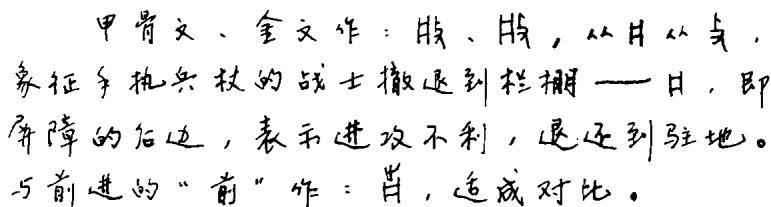 甲骨文、金文作：、，从从，
象征手执兵杖的战士撤退到栏栅——，即
屏障的后边，表示进攻不利，退还到驻地。
与前进的“前”作：，适成对比。